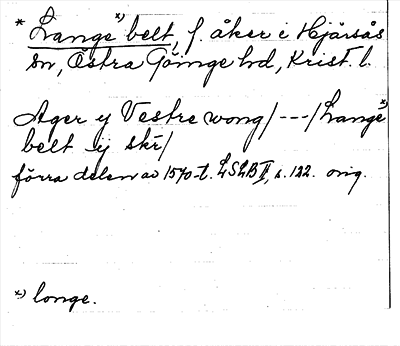 * Lange *) belt, f. åker i Hjärsås
sn, Östra Göinge hd, Krist. l.
Ager y Vestre wong/---/Lange *)
belt ij skr/
förra delen av 1570-t. LSLB II, s. 122. orig.
*) longe.